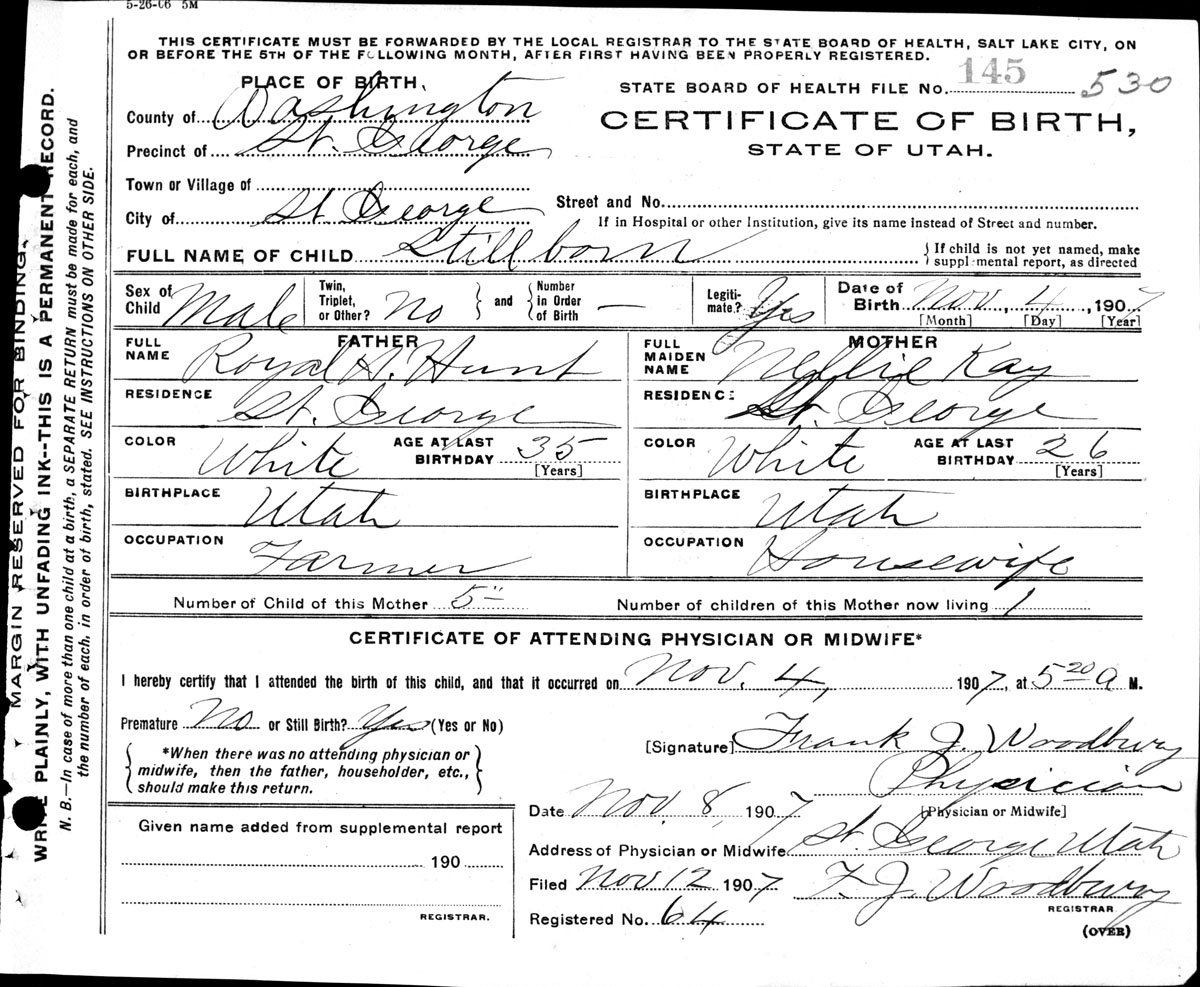 5-26-06 5M
THIS CERTIFICATE MUST BE FORWARDED BY THE LOCAL REGISTRAR TO THE STATE BOARD OF HEALTH, SALT LAKE CITY, ON
OR BEFORE THE 5TH OF THE FOLLOWING MONTH, AFTER FIRST HAVING BEEN PROPERLY REGISTERED.
PLACE OF BIRTH,
STATE BOARD OF HEALTH FILE No. 145 530
County of Washington
CERTIFICATE OF BIRTH,
Precinct of St. George
STATE OF UTAH.
Town or Village of
City of St George Street and No.
If in Hospital or other Institution, give its name instead of Street and number.
FULL NAME OF CHILD Stillborn {If child is not yet named, make
supplemental report, as directed
Sex of Child Male Twin, Triplet, or Other? No } and { Number in Order of Birth — Legiti-mate? Yes Date of Birth Nov. 4, 1907
[Month] [Day] [Year]
FATHER MOTHER
FULL NAME Royal A. Hunt FULL MAIDEN NAME Nellie Kay
RESIDENCE St. George RESIDENCE St. George
COLOR White AGE AT LAST BIRTHDAY 35 [Years] COLOR White AGE AT LAST BIRTHDAY 26 [Years]
BIRTHPLACE Utah BIRTHPLACE Utah
OCCUPATION Farmer OCCUPATION Housewife
Number of Child of this Mother 5 Number of children of this Mother now living 1
CERTIFICATE OF ATTENDING PHYSICIAN OR MIDWIFE*
I hereby certify that I attended the birth of this child, and that it occurred on Nov. 4, 1907, at 5 20 a M.
Premature No or Still Birth? Yes (Yes or No)
[Signature] Frank J. Woodbury
*When there was no attending physician or
midwife, then the father, householder, etc.,
should make this return.
Physician
[Physician or Midwife]
Date Nov. 8, 1907
Given name added from supplemental report
190
REGISTRAR.
Address of Physician or Midwife St. George Utah
Filed Nov 12 1907 F. J. Woodbury
REGISTRAR
Registered No. 64
(OVER)
MARGIN RESERVED FOR BINDING.
WRITE PLAINLY, WITH UNFADING INK--THIS IS A PERMANENT RECORD.
N. B.—In case of more than one child at a birth, a SEPARATE RETURN must be made for each, and
the number of each, in order of birth, stated. SEE INSTRUCTIONS ON OTHER SIDE.